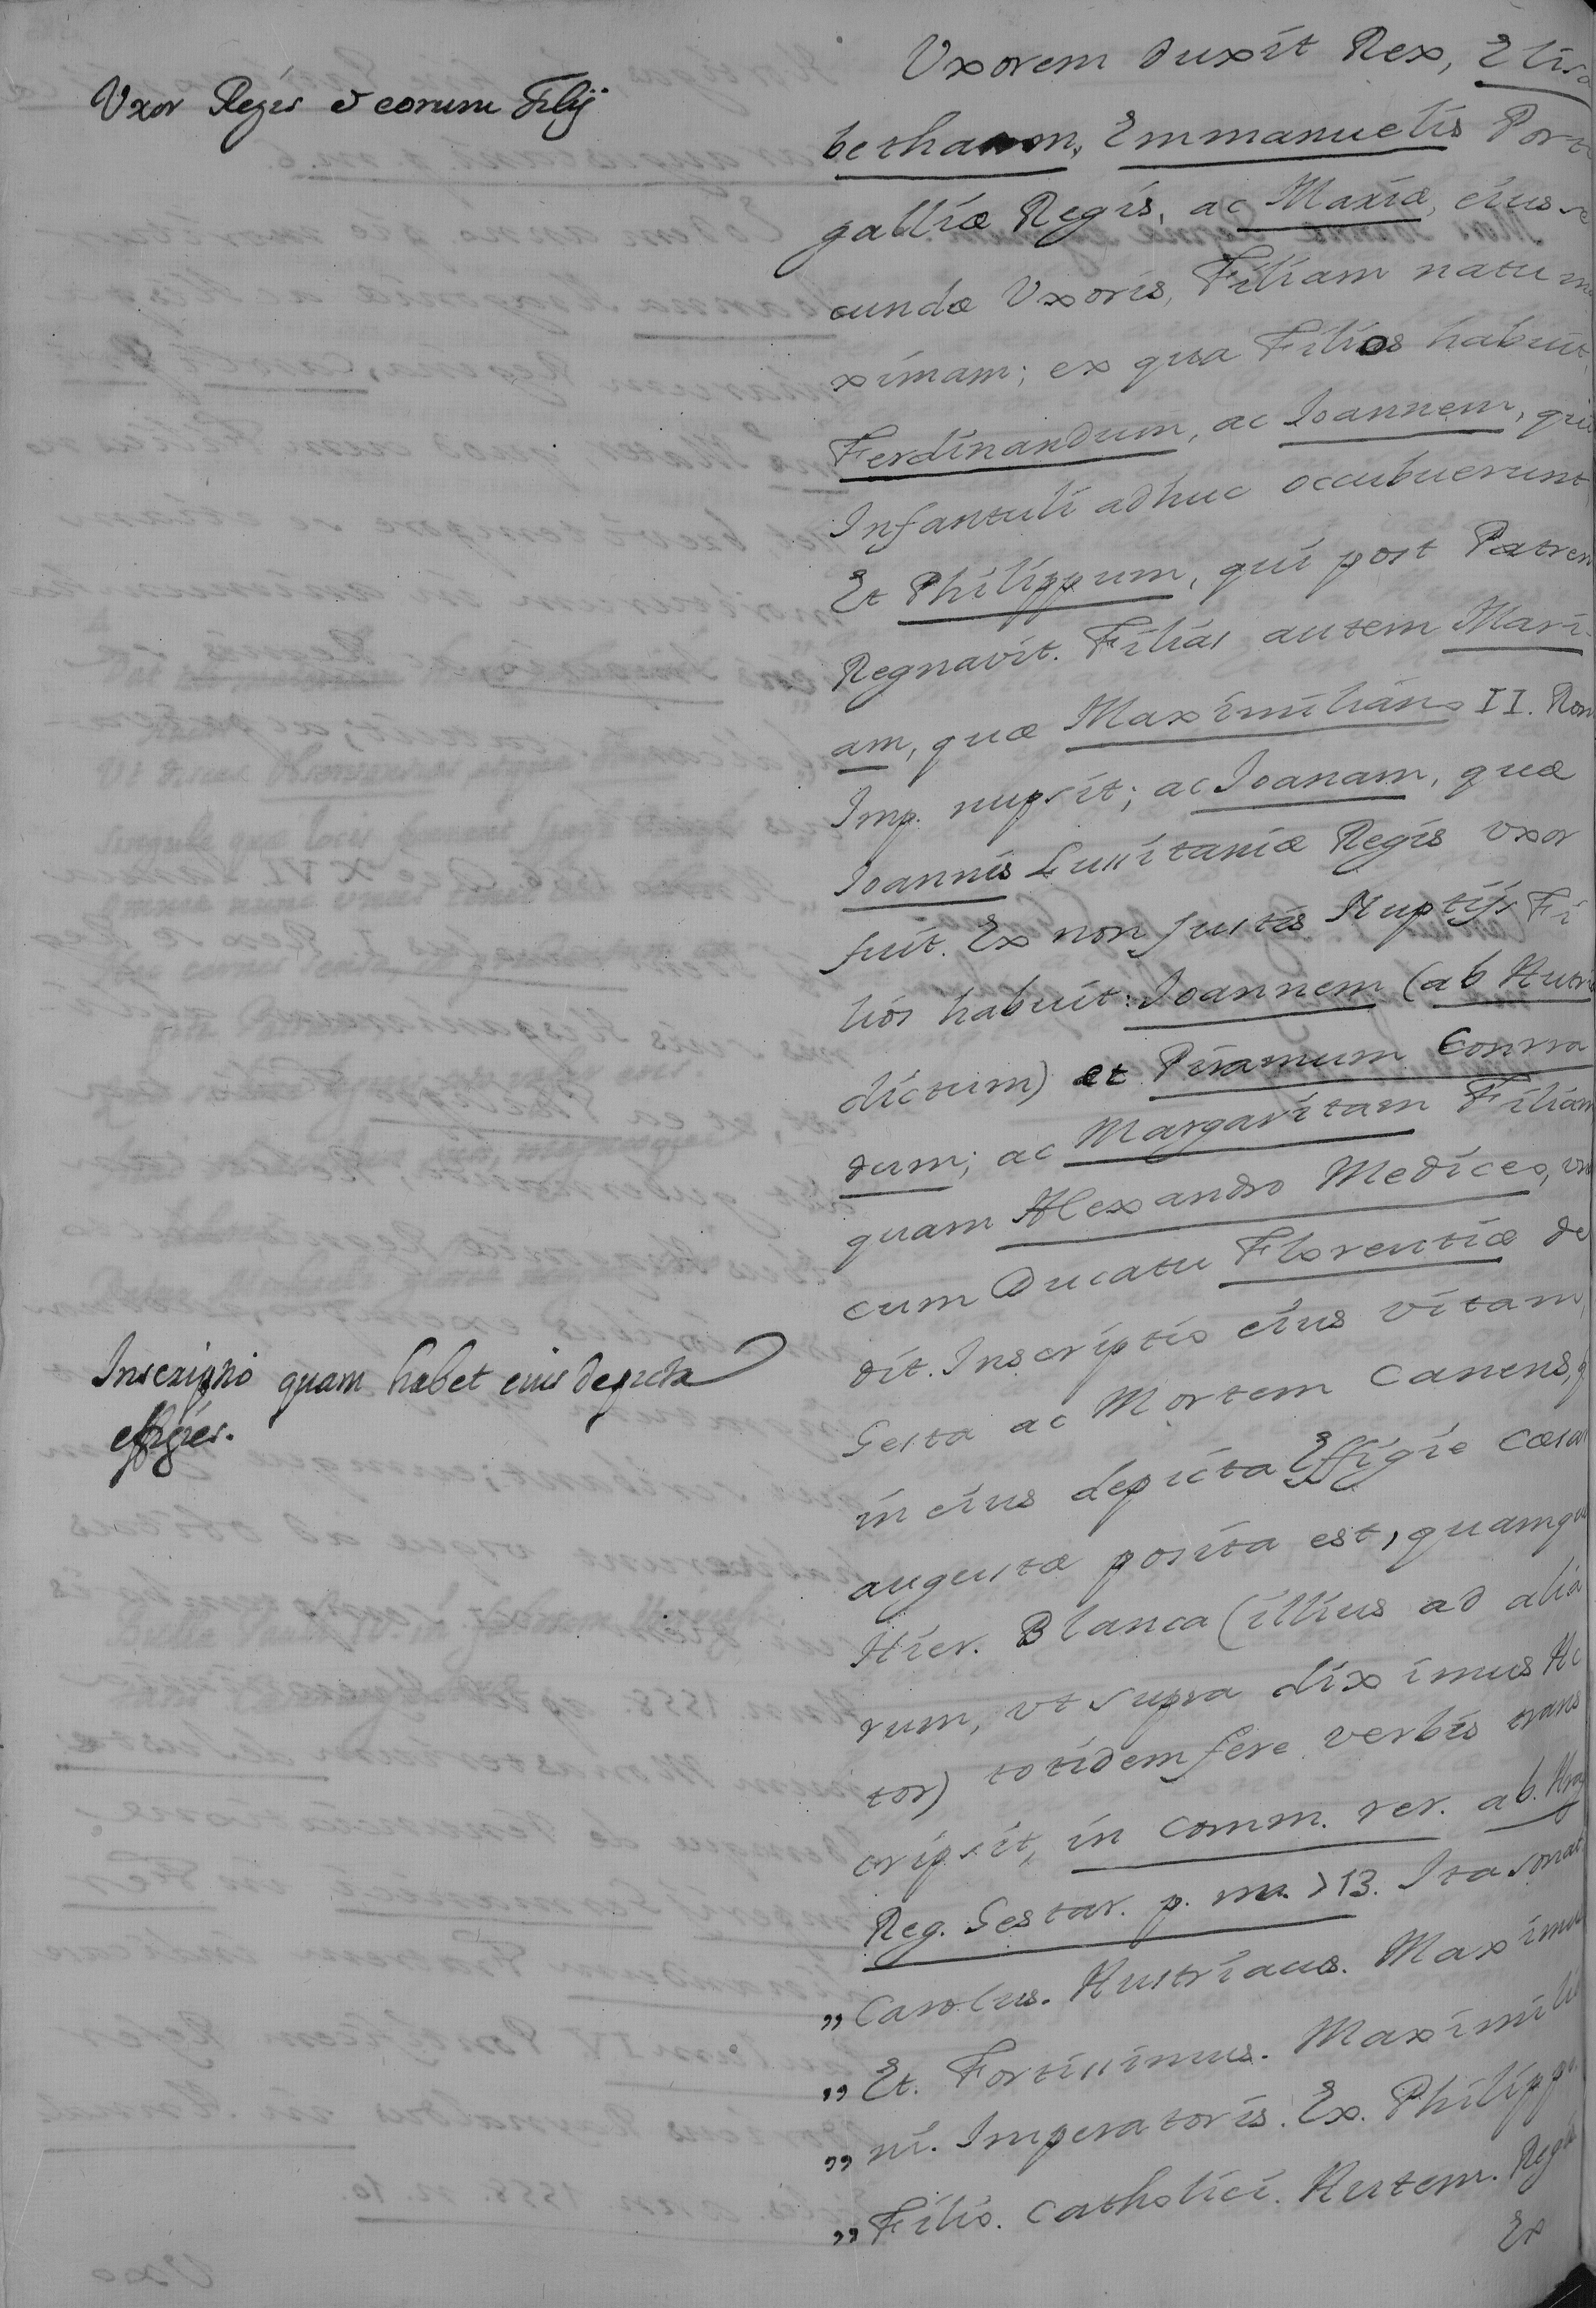 Uxor Regis et eorum Filij
Uxorem duxit Rex, Elisa
betham, Emmanuelis Port
galliæ Regis, ac Mariæ, eius se
cundæ Uxoris, Filiam natu ma
ximam; ex qua Filios habuit,
Ferdinandum, ac Ioannem, qui
Infantuli adhuc occubuerunt
Et Philippum, qui post Patrem
Regnavit. Filias autem Mari-
am, quæ Maximiliano II. Rom
Imp. nupsit; ac Ioanam, quæ
Ioannis Lussitaniæ Regis uxor
fuit. Ex non Justis Nuptijs Fi
lios habuit: Ioannem (ab Austr
dictum) et Piramum Conrra
dum; ac Margaritam Filiam
quam Alexandro Medices, un
cum Ducatu Florentiæ de
dit. Inscriptio eius vitam,
Inscriptio quam habet eius depicta
effigies.
Gesta ac Mortem canens, q
in eius depicta Effigie Cæsar
augustæ posita est, quamqu
Hier. Blanca (illius ad alia
rum, ut supra diximus Ac
tor) totidem fere verbis trans
cripsit, in comm. rer. ab. Arag
Reg. Gestar. p. m. 713. Ita sonat
„ Carolus. Austriacus. Maximus
„ Et. Fortissimus. Maximilia
„ ni. Imperatoris. Ex. Philippo.
„ Filio. Catholici. Autem. Regis
Ex